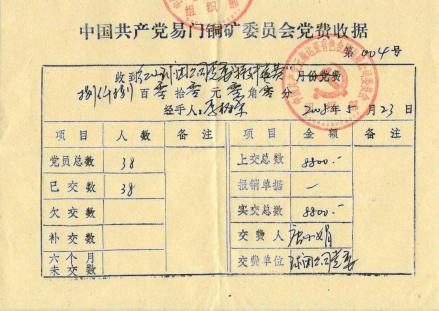 中国共产党易门铜矿委员会党费收据
第 004 号
收到 球团公司党委 月份党费
捌仟捌百零拾零元零角零分
经手人: 2008年5月23日
项目 人数 备注 项目 金额 备注
党员总数 38 上交总数 8800.-
已交数 38 报销单据 —
欠交数 实交总数 8800.-
补交数 交费人 娟
六个月未交数 交费单位 球团公司党委